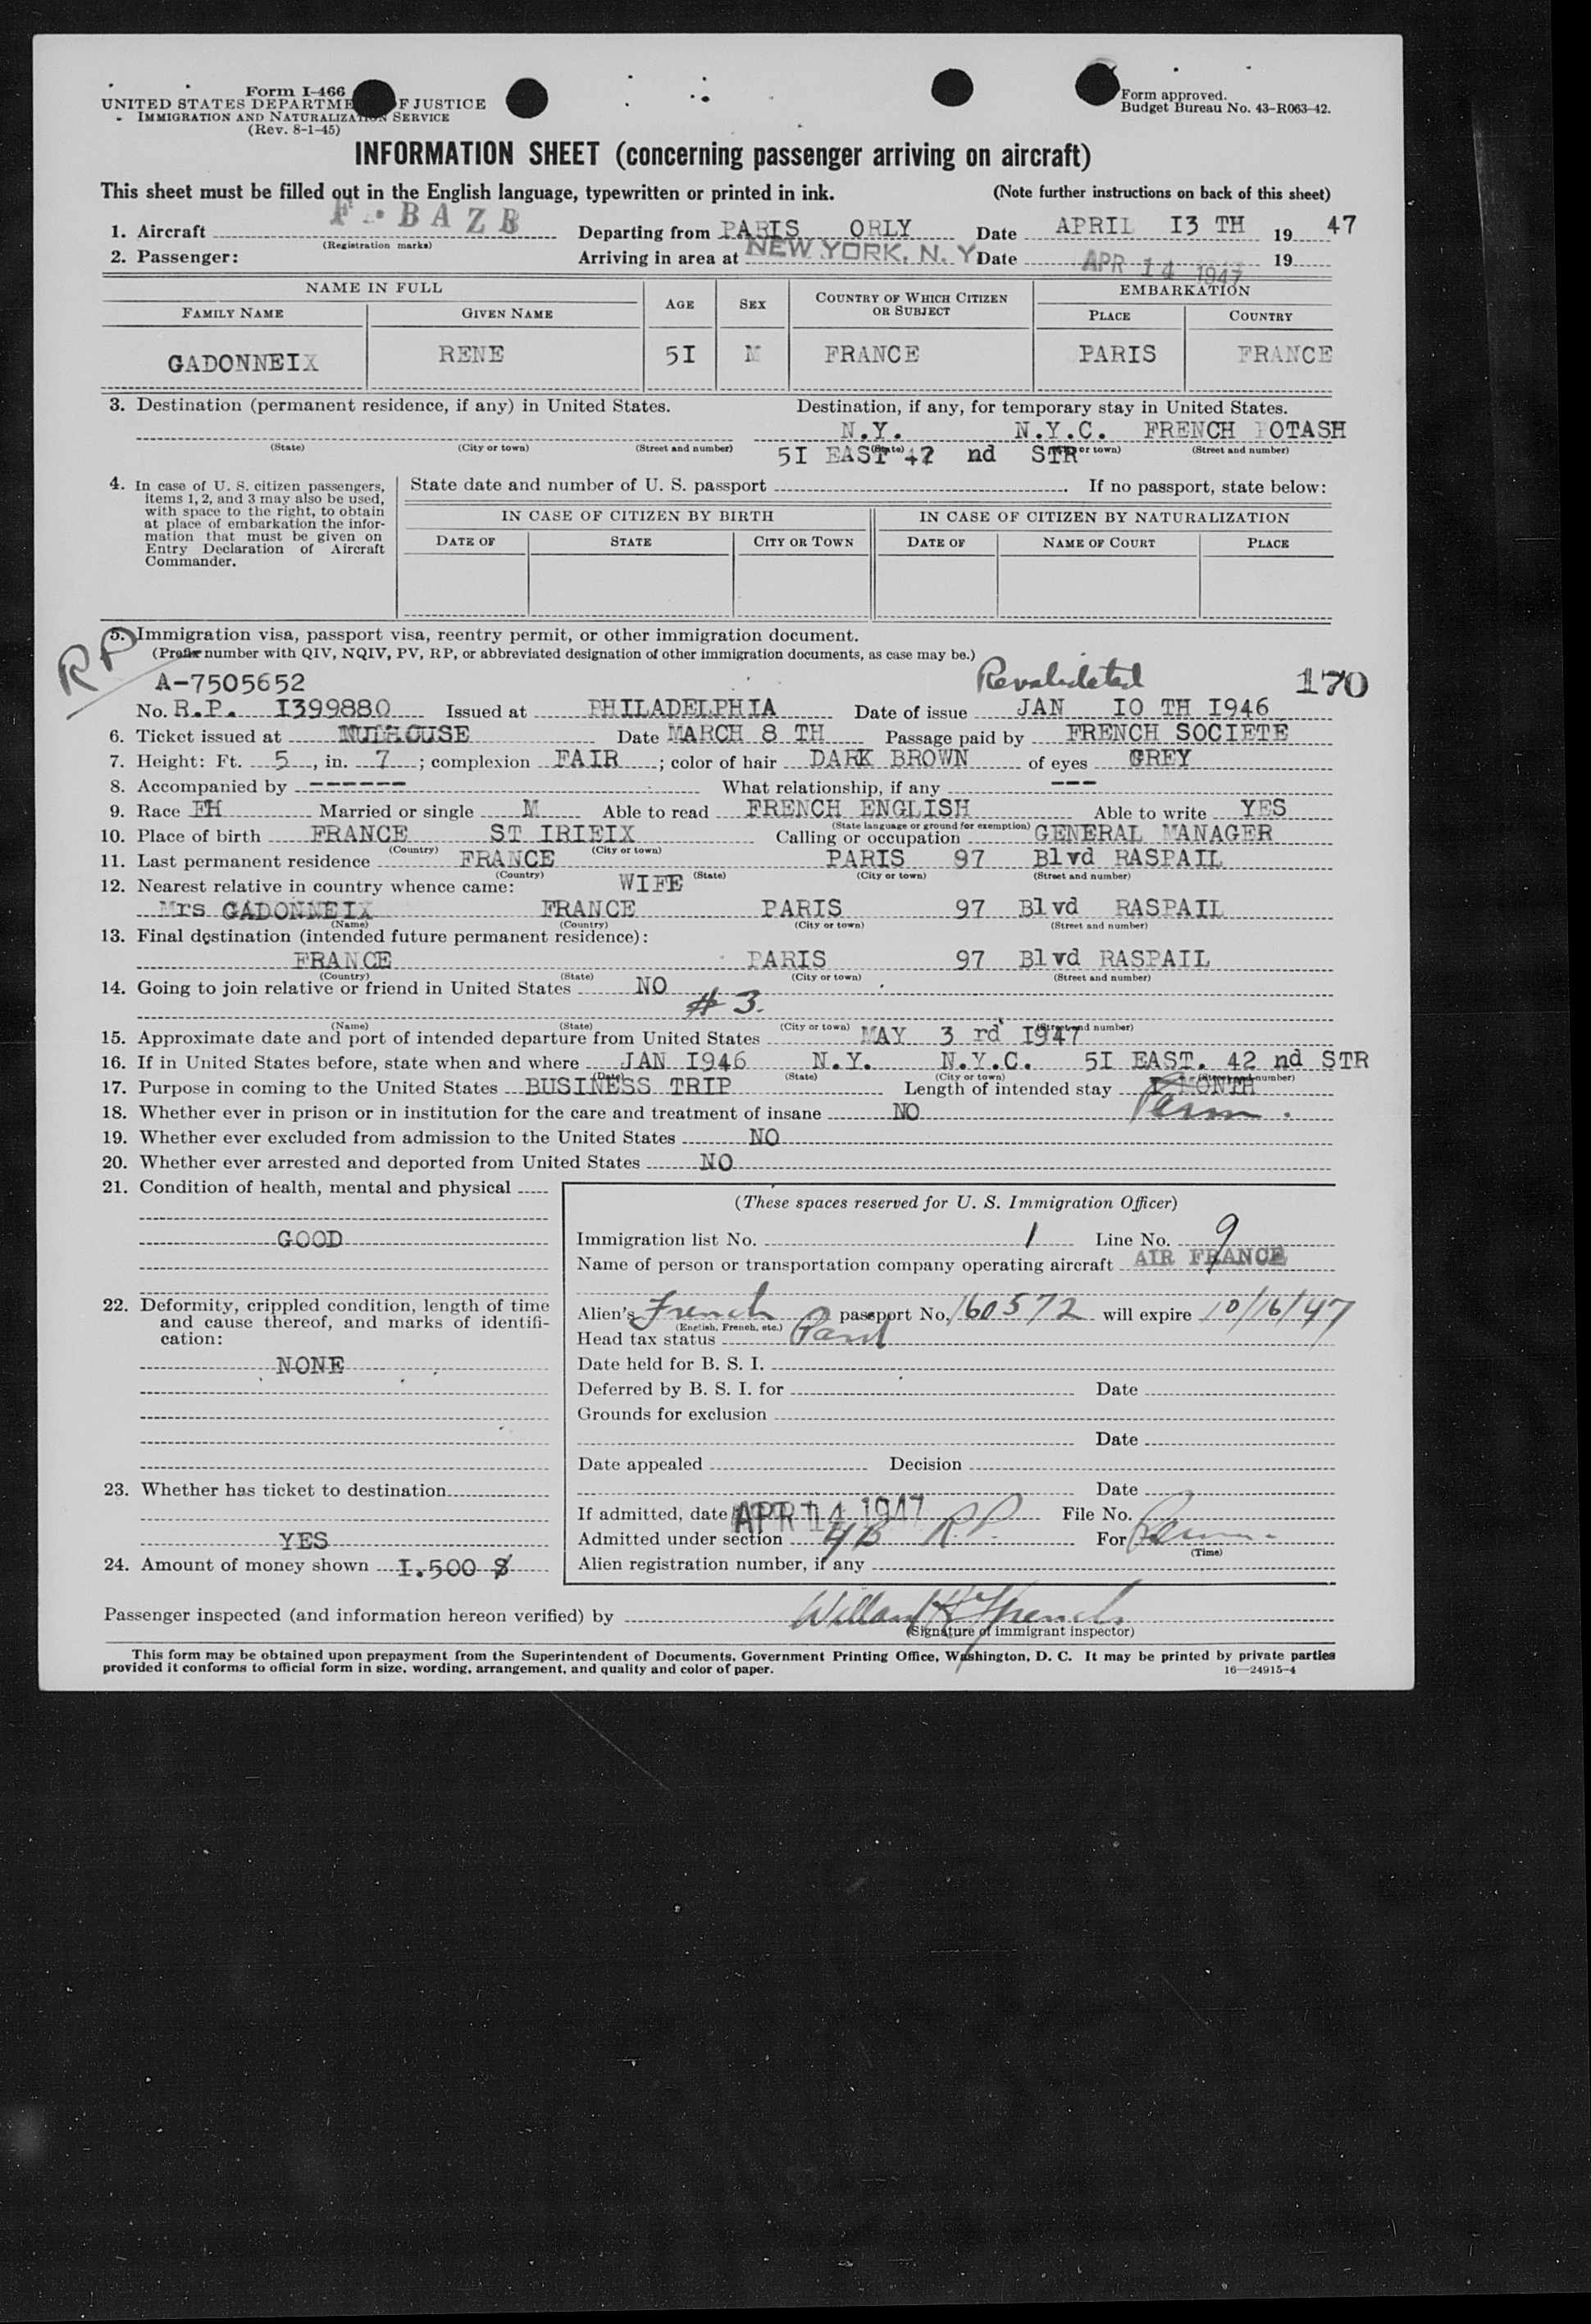 Form I-466
UNITED STATES DEPARTME F JUSTICE
IMMIGRATION AND NATURALIZATION SERVICE
(Rev. 8-1-45)
Form approved.
Budget Bureau No. 43-R063-42.
INFORMATION SHEET (concerning passenger arriving on aircraft)
This sheet must be filled out in the English language, typewritten or printed in ink. (Note further instructions on back of this sheet)
1. Aircraft F - BAZB (Registration marks) Departing from PARIS ORLY Date APRIL I3 TH 19 47
2. Passenger: Arriving in area at NEW YORK, N. Y. Date APR 14 1947 19
NAME IN FULL AGE SEX COUNTRY OF WHICH CITIZEN OR SUBJECT EMBARKATION
FAMILY NAME GIVEN NAME PLACE COUNTRY
GADONNEIX RENE 5I M FRANCE PARIS FRANCE
3. Destination (permanent residence, if any) in United States. Destination, if any, for temporary stay in United States.
N.Y. N.Y.C. FRENCH POTASH
(State) (City or town) (Street and number) (State) (City or town) (Street and number)
5I EAST 42 nd STR
4. In case of U. S. citizen passengers, items 1, 2, and 3 may also be used, with space to the right, to obtain at place of embarkation the information that must be given on Entry Declaration of Aircraft Commander.
State date and number of U. S. passport If no passport, state below:
IN CASE OF CITIZEN BY BIRTH IN CASE OF CITIZEN BY NATURALIZATION
DATE OF STATE CITY OR TOWN DATE OF NAME OF COURT PLACE
RP
5. Immigration visa, passport visa, reentry permit, or other immigration document.
(Prefix number with QIV, NQIV, PV, RP, or abbreviated designation of other immigration documents, as case may be.)
A-7505652 Revalidated 170
No. R.P. I399880 Issued at PHILADELPHIA Date of issue JAN IO TH I946
6. Ticket issued at MULHOUSE Date MARCH 8 TH Passage paid by FRENCH SOCIETE
7. Height: Ft. 5, in. 7; complexion FAIR; color of hair DARK BROWN of eyes GREY
8. Accompanied by ------ What relationship, if any ---
9. Race FH Married or single M Able to read FRENCH ENGLISH Able to write YES
(State language or ground for exemption)
10. Place of birth FRANCE ST IRIEIX Calling or occupation GENERAL MANAGER
(Country) (City or town)
11. Last permanent residence FRANCE PARIS 97 Blvd RASPAIL
(Country) (State) (City or town) (Street and number)
12. Nearest relative in country whence came: WIFE
Mrs GADONNEIX FRANCE PARIS 97 Blvd RASPAIL
(Name) (Country) (City or town) (Street and number)
13. Final destination (intended future permanent residence):
FRANCE PARIS 97 Blvd RASPAIL
(Country) (State) (City or town) (Street and number)
14. Going to join relative or friend in United States NO
# 3.
(Name) (State) (City or town) (Street and number)
15. Approximate date and port of intended departure from United States MAY 3 rd I947
16. If in United States before, state when and where JAN I946 N.Y. N.Y.C. 5I EAST. 42 nd STR
(Date) (State) (City or town) (Street and number)
17. Purpose in coming to the United States BUSINESS TRIP Length of intended stay I MONTH
Perm.
18. Whether ever in prison or in institution for the care and treatment of insane NO
19. Whether ever excluded from admission to the United States NO
20. Whether ever arrested and deported from United States NO
21. Condition of health, mental and physical
GOOD
22. Deformity, crippled condition, length of time and cause thereof, and marks of identification:
NONE
23. Whether has ticket to destination
YES
24. Amount of money shown I.500 $
(These spaces reserved for U. S. Immigration Officer)
Immigration list No. 1 Line No. 9
Name of person or transportation company operating aircraft AIR FRANCE
Alien's French passport No. 160572 will expire 10/16/47
(English, French, etc.)
Head tax status
Date held for B. S. I.
Deferred by B. S. I. for Date
Grounds for exclusion
Date
Date appealed Decision
Date
If admitted, date APR 14 1947 File No.
Admitted under section 4B R.P. For Perm.
(Time)
Alien registration number, if any
Passenger inspected (and information hereon verified) by
(Signature of immigrant inspector)
This form may be obtained upon prepayment from the Superintendent of Documents, Government Printing Office, Washington, D. C. It may be printed by private parties
provided it conforms to official form in size, wording, arrangement, and quality and color of paper. 16—24915-4